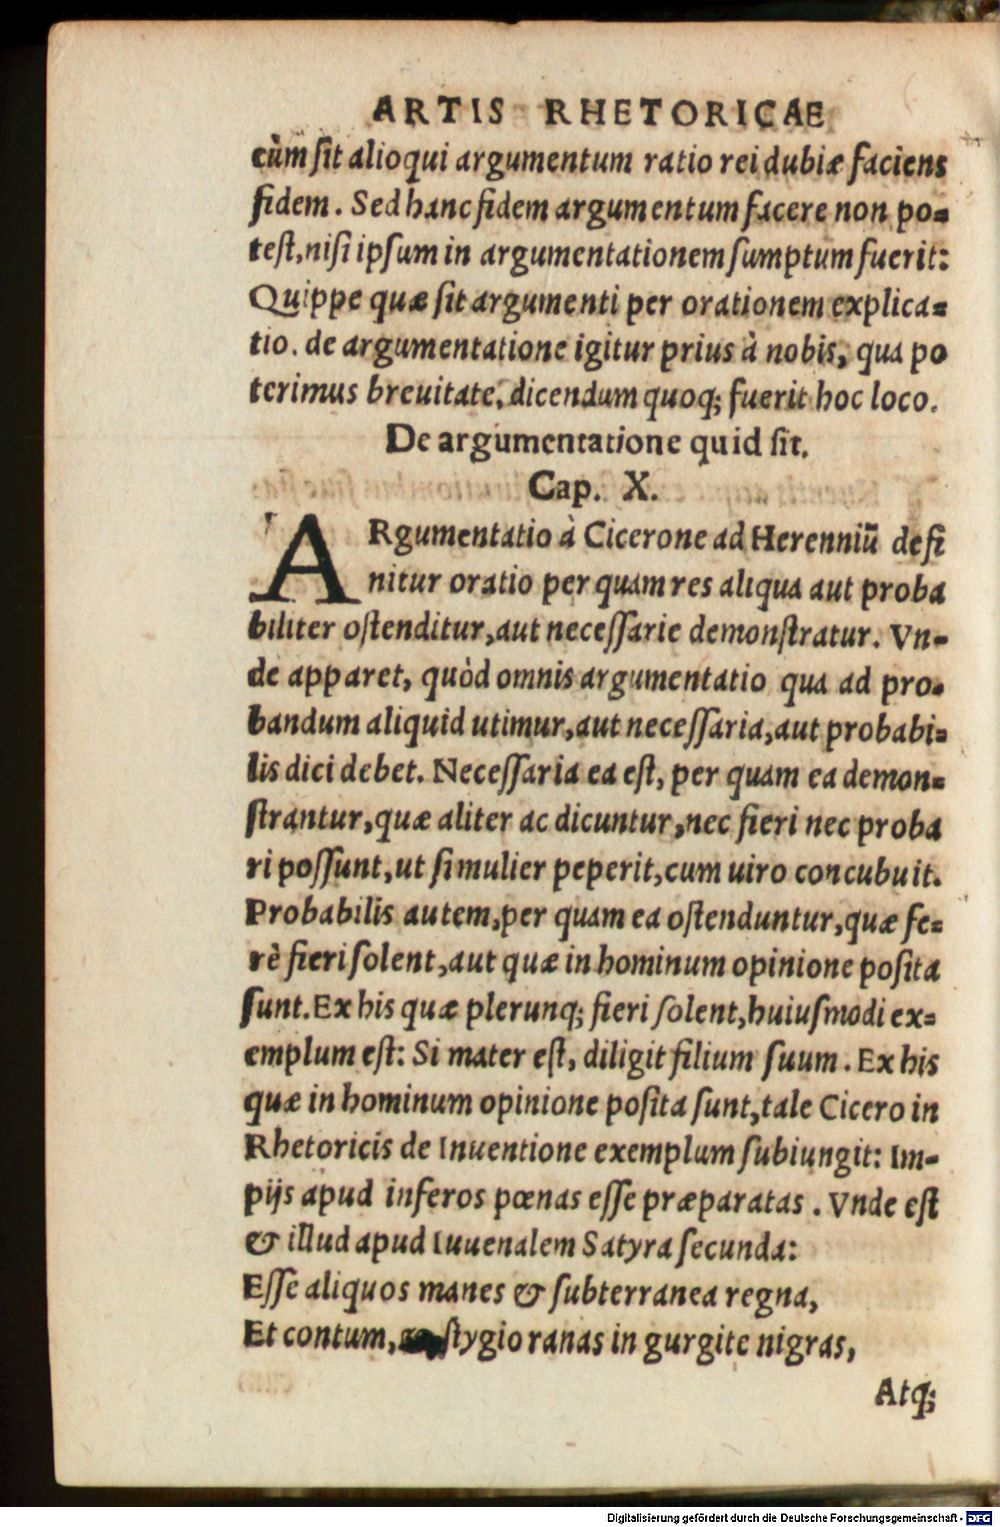 ARTIS RHETORICAE
cùm ſit alioqui argumentum ratio rei dubiæ faciens
fidem. Sed hanc fidem argumentum facere non po=
teſt, niſi ipſum in argumentationem ſumptum fuerit:
Quippe quæ ſit argumenti per orationem explica=
tio. de argumentatione igitur prius à nobis, qua po
terimus breuitate, dicendum quoq; fuerit hoc loco.
De argumentatione quid ſit.
Cap. X.
ARgumentatio à Cicerone ad Herenniũ defi
nitur oratio per quam res aliqua aut proba
biliter oſtenditur, aut neceſſarie demonſtratur. Vn-
de apparet, quòd omnis argumentatio qua ad pro-
bandum aliquid utimur, aut neceſſaria, aut probabi=
lis dici debet. Neceſſaria ea eſt, per quam ea demon=
ſtrantur, quæ aliter ac dicuntur, nec fieri nec proba
ri poſſunt, ut ſi mulier peperit, cum uiro concubuit.
Probabilis autem, per quam ea oſtenduntur, quæ fe=
rè fieri ſolent, aut quæ in hominum opinione poſita
ſunt. Ex his quæ plerunq; fieri ſolent, huiuſmodi ex=
emplum eſt: Si mater eſt, diligit filium ſuum. Ex his
quæ in hominum opinione poſita ſunt, tale Cicero in
Rhetoricis de Inuentione exemplum ſubiungit: Im-
pijs apud inferos pœnas eſſe præparatas. Vnde eſt
& illud apud Iuuenalem Satyra ſecunda:
Eſſe aliquos manes & ſubterranea regna,
Et contum, ſtygio ranas in gurgite nigras,
Atq;
Digitalisierung gefördert durch die Deutsche Forschungsgemeinschaft - DFG